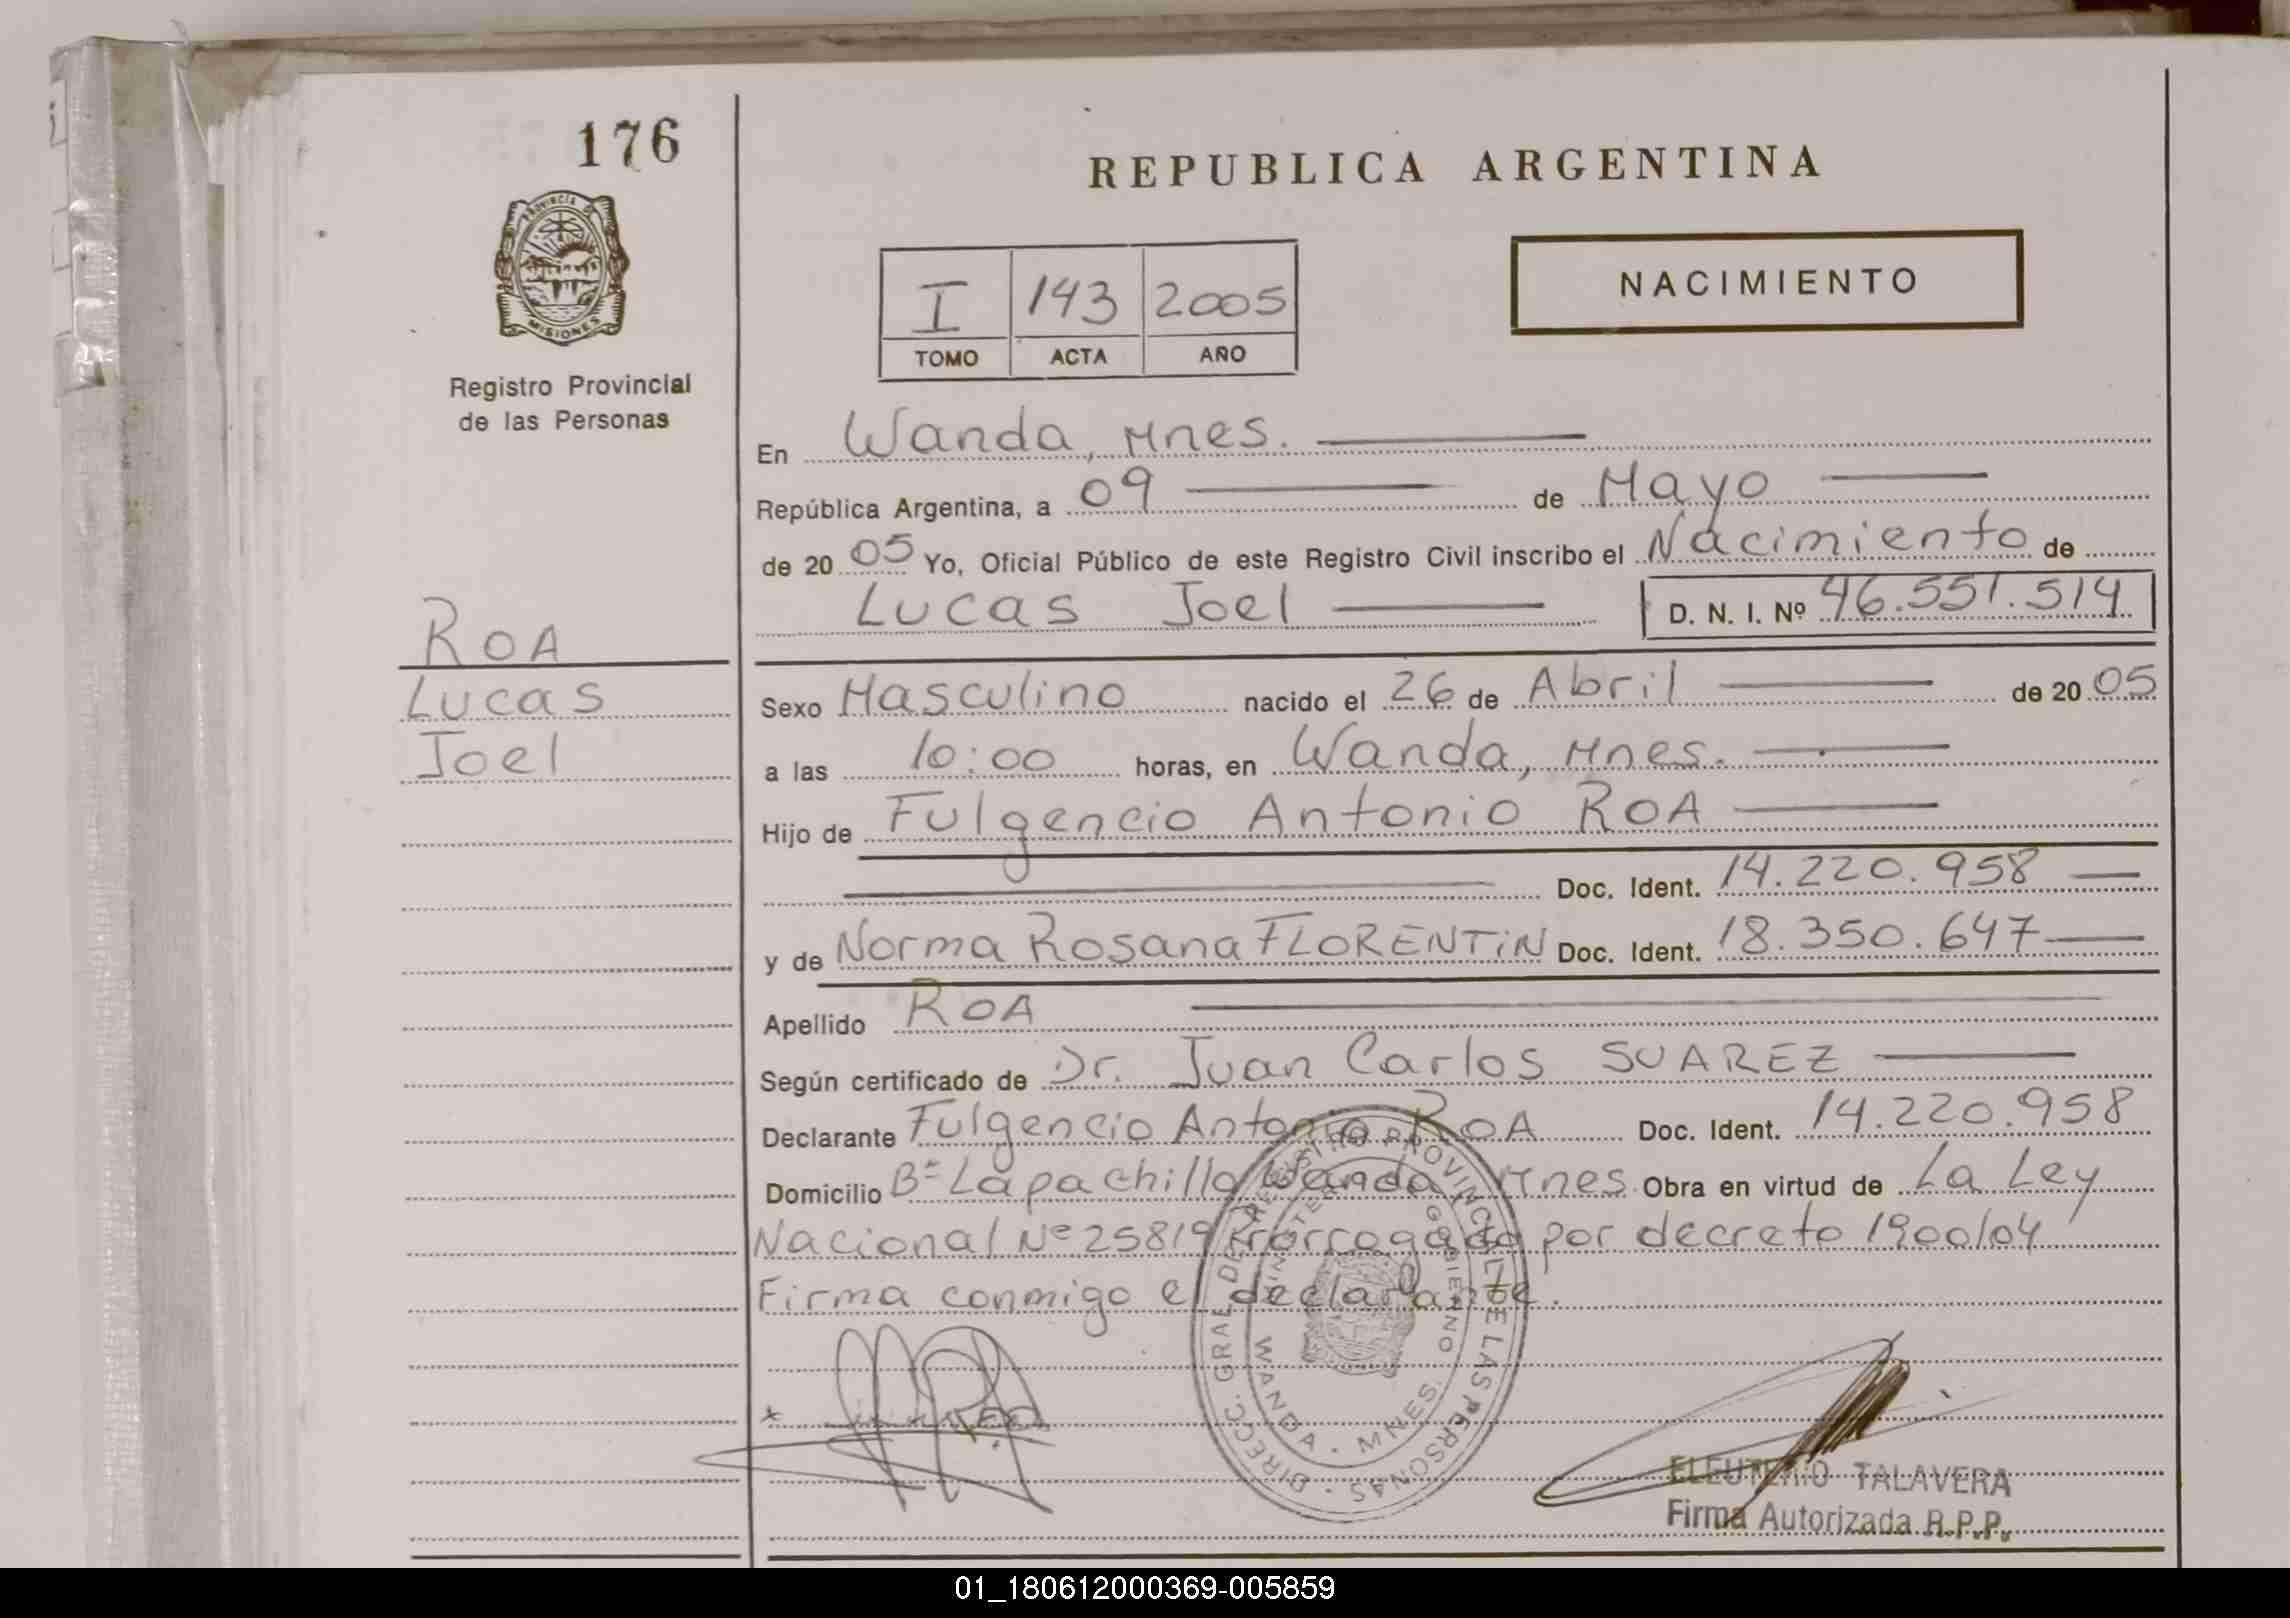 176
PROVINCIA DE
MISIONES
Registro Provincial
de las Personas
ROA
Lucas
Joel
REPUBLICA ARGENTINA
NACIMIENTO
I 143 2005
TOMO ACTA AÑO
En Wanda, Mnes.
República Argentina, a 09 de Mayo
de 20 05 Yo, Oficial Público de este Registro Civil inscribo el Nacimiento de
Lucas Joel D. N. I. Nº 46.551.514
Sexo Masculino nacido el 26 de Abril de 20 05
a las 10:00 horas, en Wanda, Mnes.
Hijo de Fulgencio Antonio ROA
Doc. Ident. 14.220.958
y de Norma Rosana FLORENTiN Doc. Ident. 18.350.647
Apellido ROA
Según certificado de Dr. Juan Carlos SUAREZ
Declarante Fulgencio Antonio ROA Doc. Ident. 14.220.958
Domicilio Bº Lapachillo Wanda, Mnes. Obra en virtud de La Ley
Nacional Nº 25819 Prorrogado por decreto 1900/04
Firma conmigo el declarante.
DIRECC. GRAL DE REGISTRO PROVINCIAL DE LAS PERSONAS
MINISTERIO GOBIERNO
WANDA - MNES.
ELEUTERIO TALAVERA
Firma Autorizada R.P.P.
01_180612000369-005859